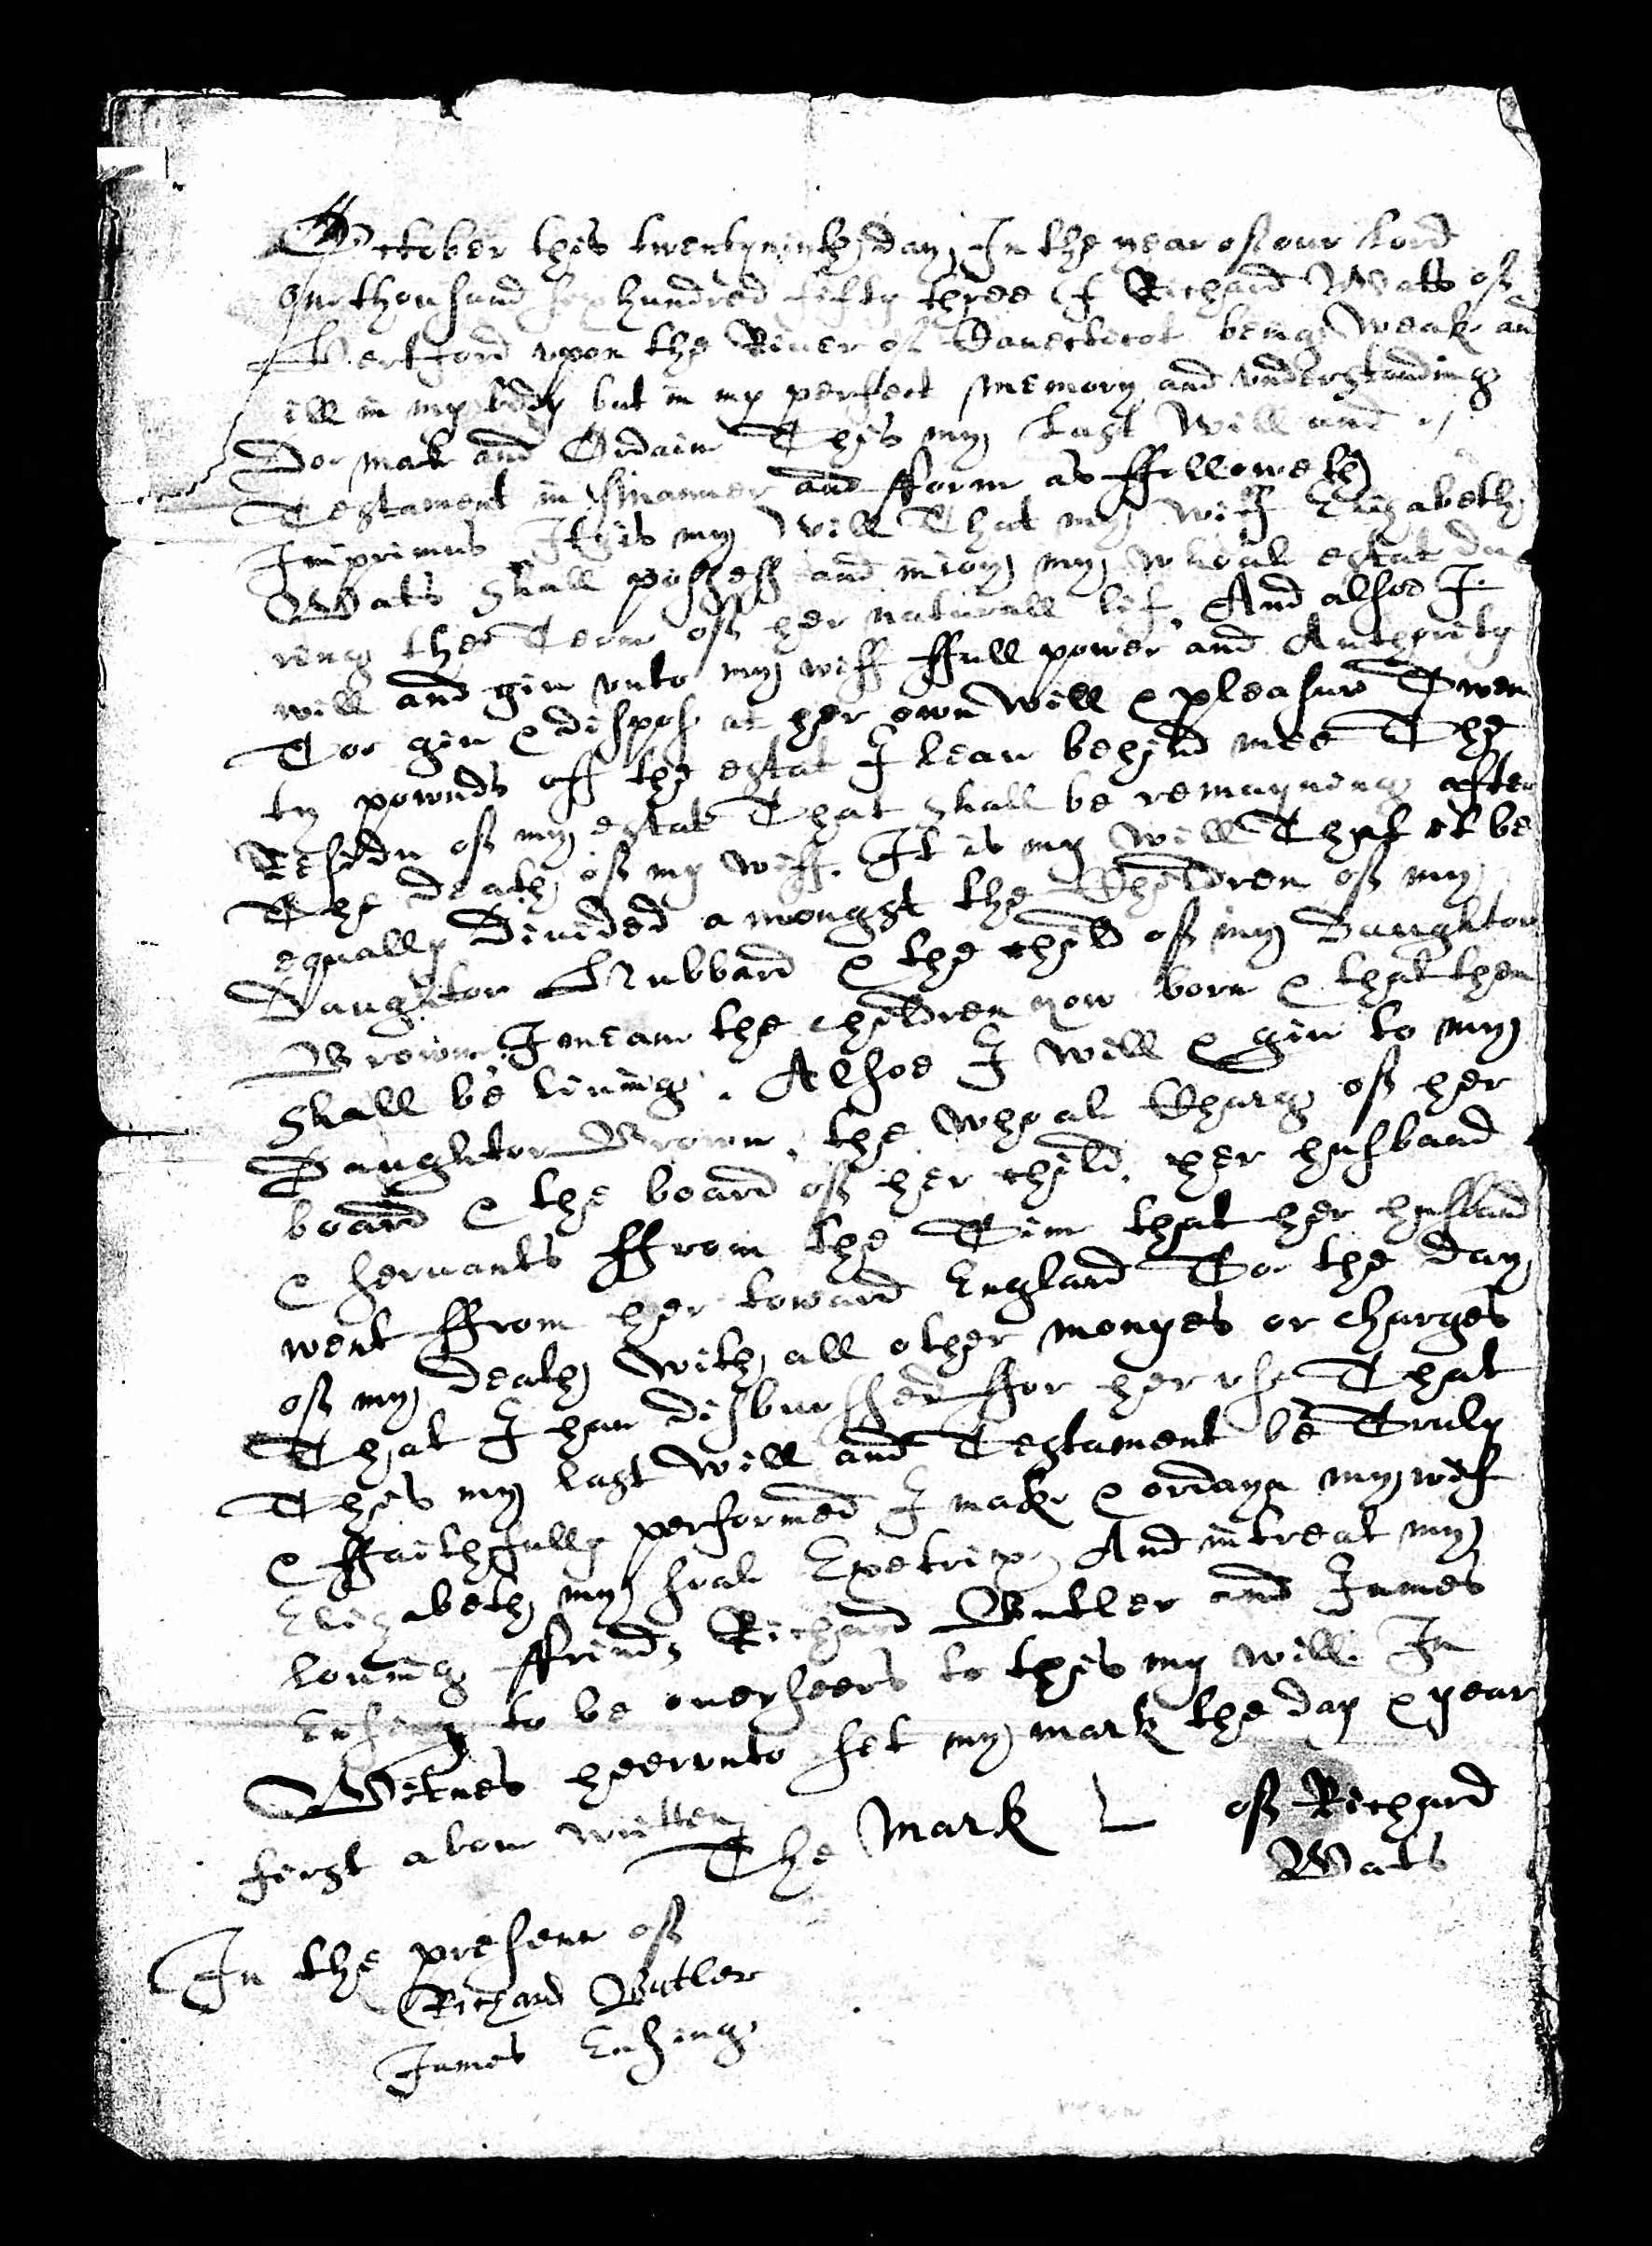 October this twentyninth day, In the year off our Lord
one thousand six hundred fifty three I Richard Watts off
Hertford vpon the Riuer off Canecticot being weak and
ill in my body but in my perfect memory and vnderstanding
Doe mak and Ordaine This my last Will and
Testament in Manner and fform as ffolloweth
Imprimus It is my Will That my wiff Elizabeth
Wats shall possess and inioy my wheal estat du
ring the Term off her naturall lif, And alsoe I
will and giu vnto my wiff ffull power and Authority
Too giu & dispos at her own will & pleasur Twen
ty pownds off the estat I leau behind mee The
Residu off my estat That shall be remayning after
The death off my wiff. It is my will That it be
equally Diuided amongst the Children off my
Daughter Hubbard & the child off my Daughter
Browne. I meane the children now born & that then
shall be liuing. Alsoe I will & giu to my
Daughter Brown, the wheal Charg off her
board & the board off her child, her husband
& seruants ffrom the Tim that her husband
went ffrom her toward England Too the day
off my death with all other monyes or charges
That I hau disbursed ffor her vse That
This my last will and Testament be Truly
& ffaithfully performed I mak & ordayn my wif
Elizabeth my soal Exetrix, And intreat my
louing ffrinds Richard Butler and James
Ensing to be ouerseers to this my will. In
Witnes heervnto set my mark the day & year
first aboue written
The Mark L off Richard
Wats
In the presenc off
Richard Butler
James Ensing